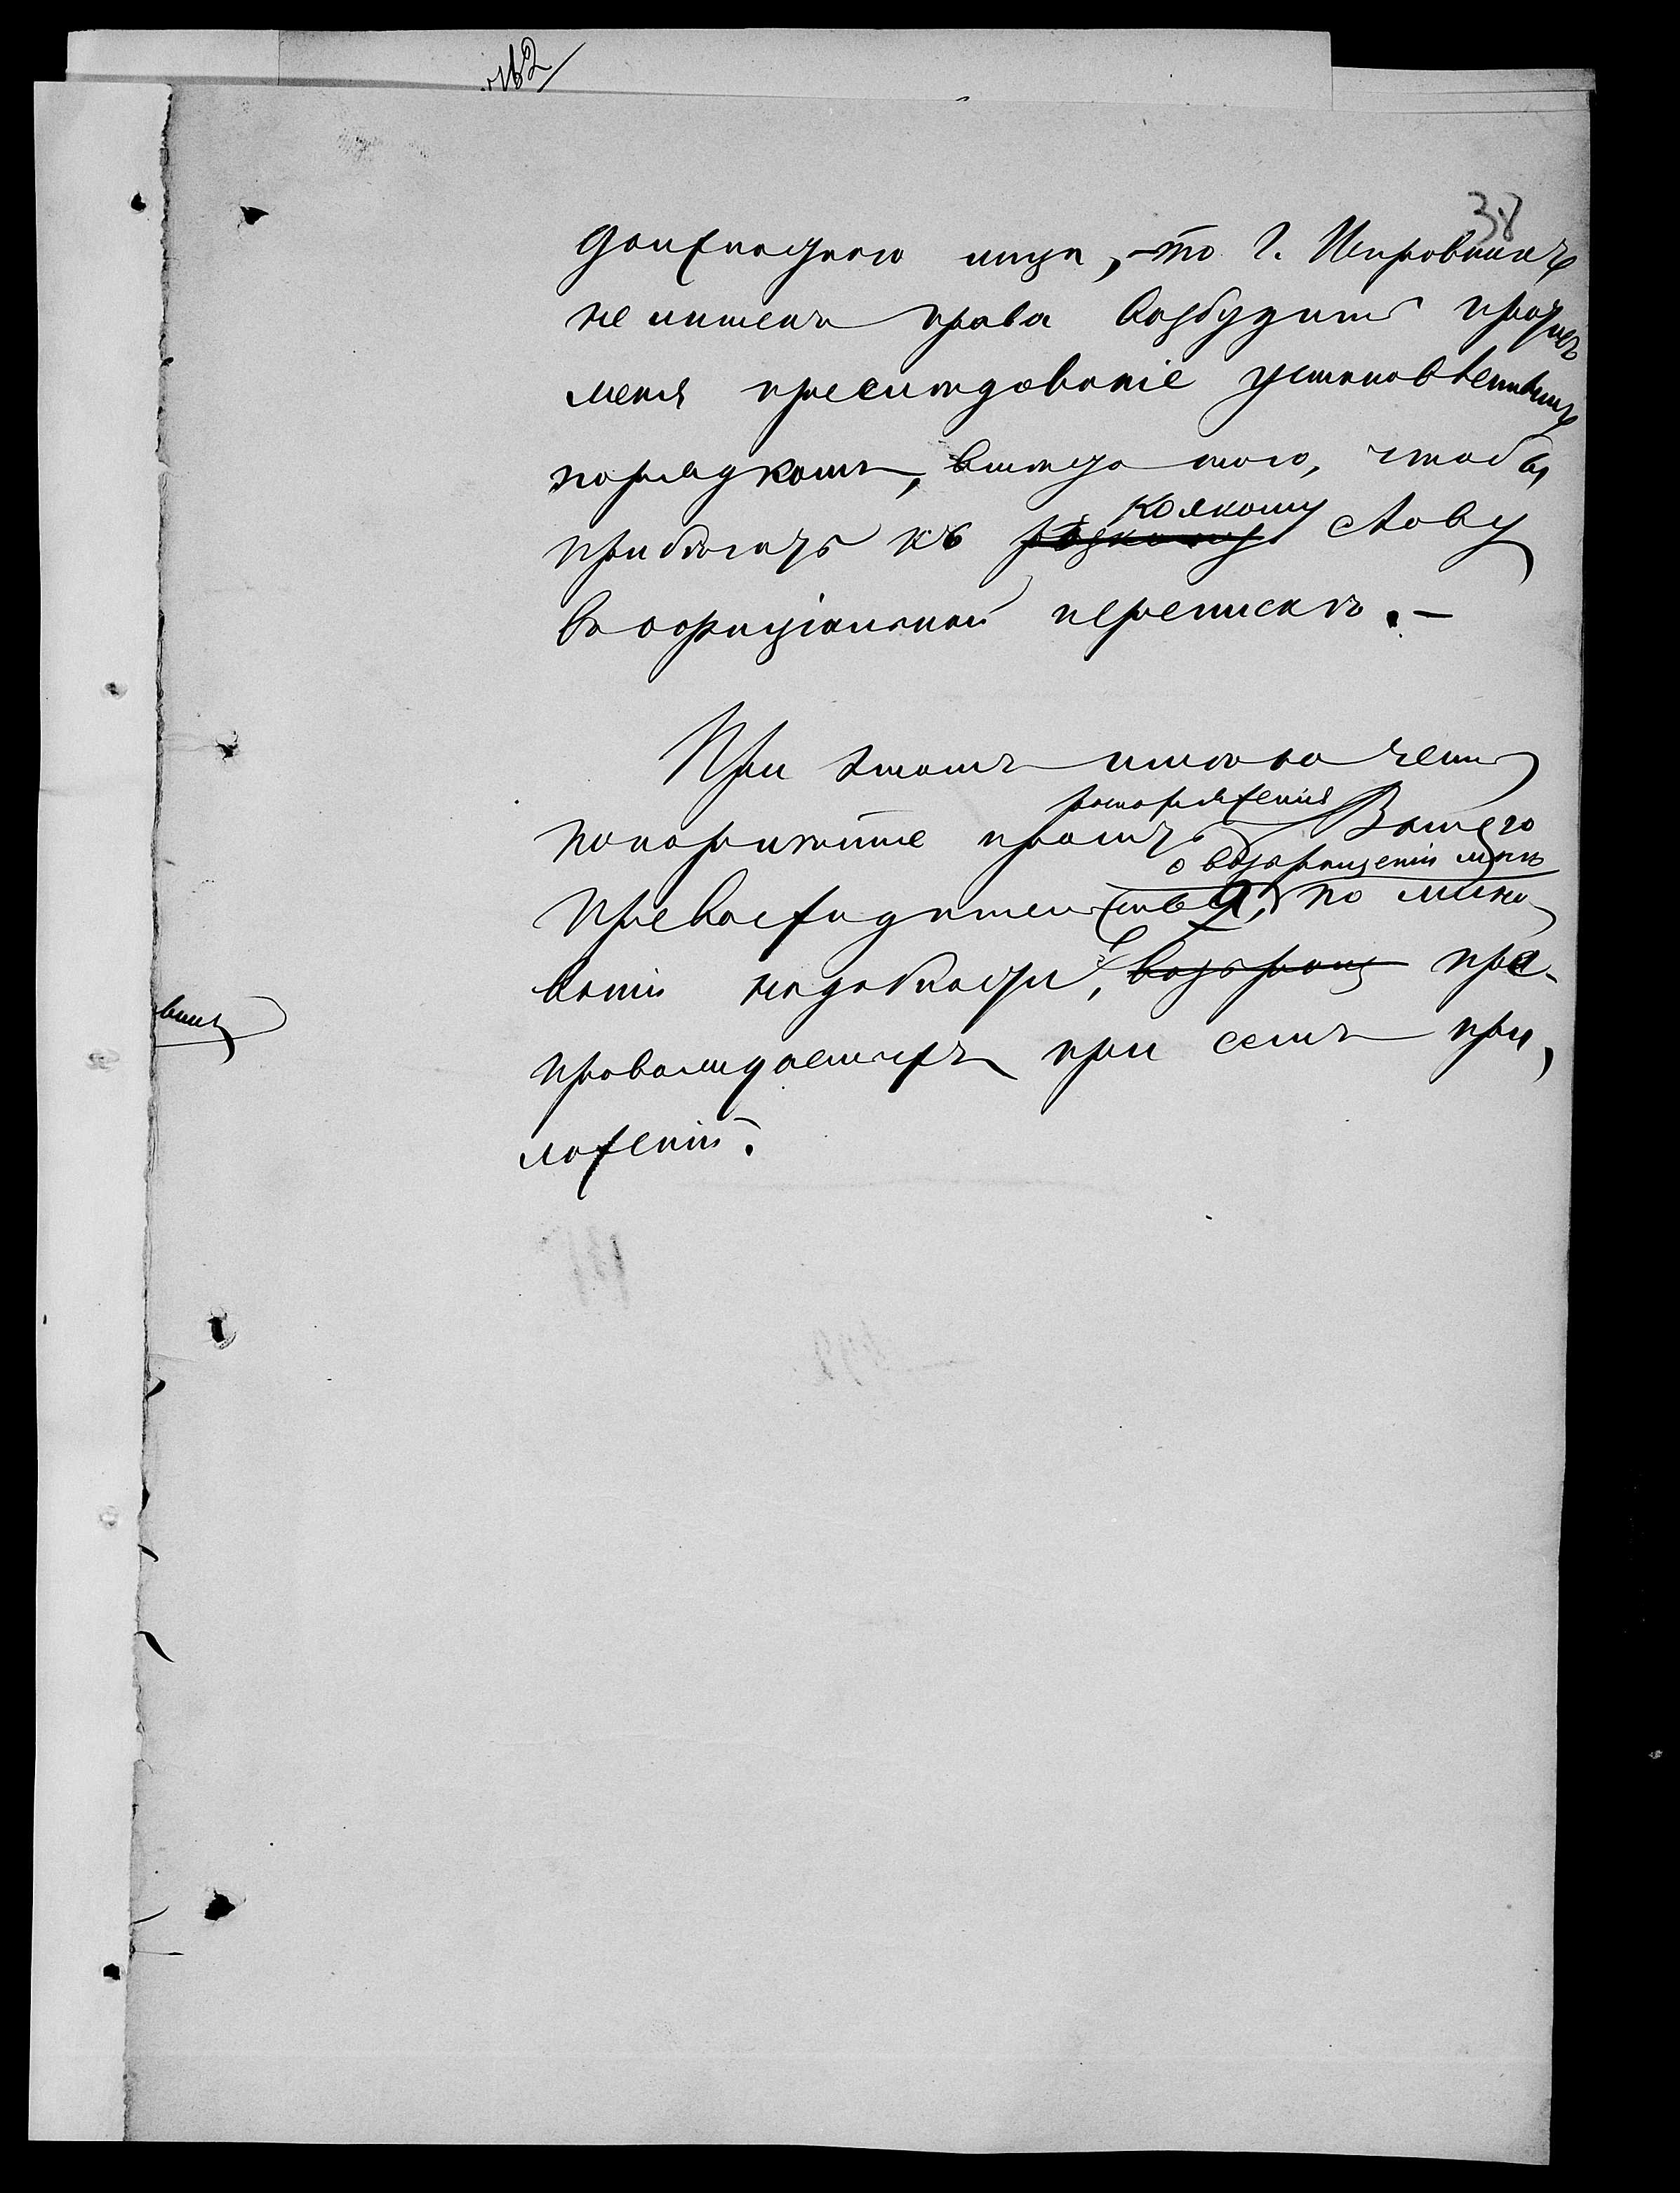 38
должностнаго лица, – то г. Исправникъ
не лишенъ права возбудить противъ
меня преслѣдованіе установленнымъ
порядкомъ, вмѣсто того, чтобы
прибѣгать къ колкому слову
въ оффиціальной перепискѣ. –
При этомъ имѣю честь
покорнѣйше просить распоряженія Вашего
Превосходительства, о возвращеніи мнѣ по мино-
ваніи надобности, возвращ пре-
провождаемыхъ при семъ при-
ложеній.